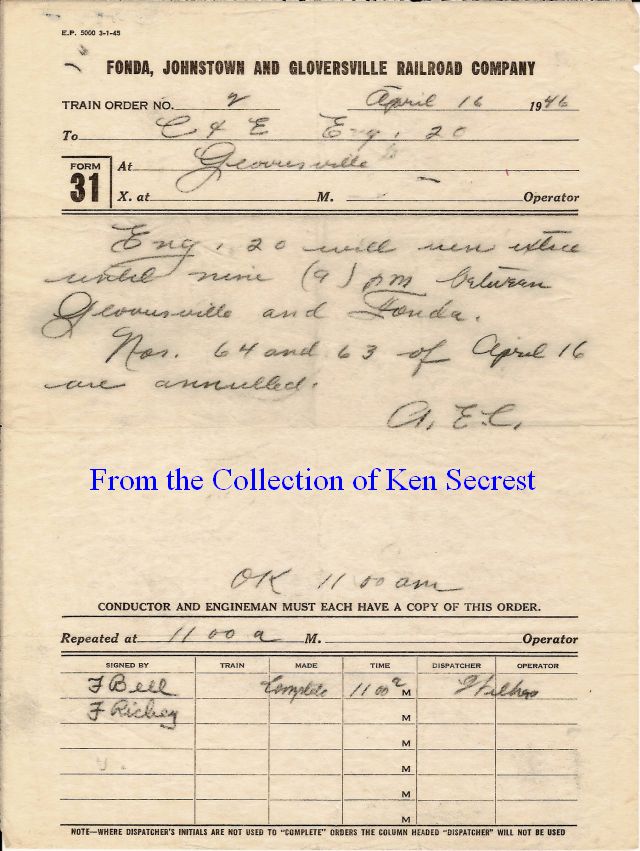 E.P. 5000 3-1-45
FONDA, JOHNSTOWN AND GLOVERSVILLE RAILROAD COMPANY
TRAIN ORDER NO. 2 April 16 1946
To C & E Eng. 20
FORM 31
At Gloversville
X. at M. Operator
Eng. 20 will run extra
until nine (9) pm between
Gloversville and Fonda.
Nos. 64 and 63 of April 16
are annulled.
A. E. C.
From the Collection of Ken Secrest
OK 11 00 am
CONDUCTOR AND ENGINEMAN MUST EACH HAVE A COPY OF THIS ORDER.
Repeated at 11 00 a M. Operator
SIGNED BY TRAIN MADE TIME DISPATCHER OPERATOR
F Bell Complete 11 00 a M
F Richey M
M
M
M
M
NOTE—WHERE DISPATCHER'S INITIALS ARE NOT USED TO "COMPLETE" ORDERS THE COLUMN HEADED "DISPATCHER" WILL NOT BE USED